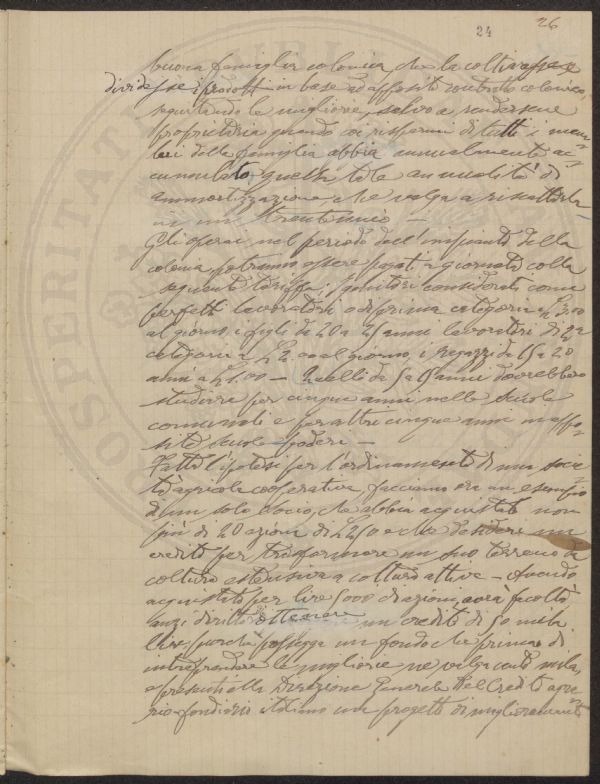 24
26
buona famiglia colonica, che la coltivasse e
dividesse i prodotti in base ad apposito contratto colonico,
seguitando le migliorie, salvo a rendersene
proprietaria quando coi risparmi di tutti i mem-
bri della famiglia abbia annualmente ac-
cumulato quella tale annualità di
ammortizzazione, che valga a riscattarla
in un trentennio —
Gli operai nel periodo dell'impianto della
colonia potranno essere pagati a giornata colla
seguente tariffa; i genitori considerati come
perfetti lavoratori o di prima categoria a L. 3,00
al giorno, i figli da 20 a 25 anni lavoratori di 2a
categoria a L. 2.00 al giorno, i ragazzi da 15 a 20
anni a L 1.00 — Quelli da 5 a 15 anni dovrebbero
studiare per cinque anni nelle scuole
comunali e per altri cinque anni in appo-
site scuole-poderi —
Fatta l'ipotesi per l'ordinamento di una socie-
tà agricola cooperativa, facciamo ora un esempio
di un solo socio, che abbia acquistato non
più di 20 azioni di L 250 e che desideri un
credito per trasformare un suo terreno a
coltura estensiva a coltura attiva — Avendo
acquistato per lire 5000 di azioni, avrà facoltà
anzi diritto ottenere un credito di 50 mila
lire purché possegga un fondo che prima di
intraprendere le migliorie ne valga cento mila,
e presenti alla Direzione Generale del Credito agra-
rio-fondiario italiano un progetto di miglioramento
PROSPERITATI